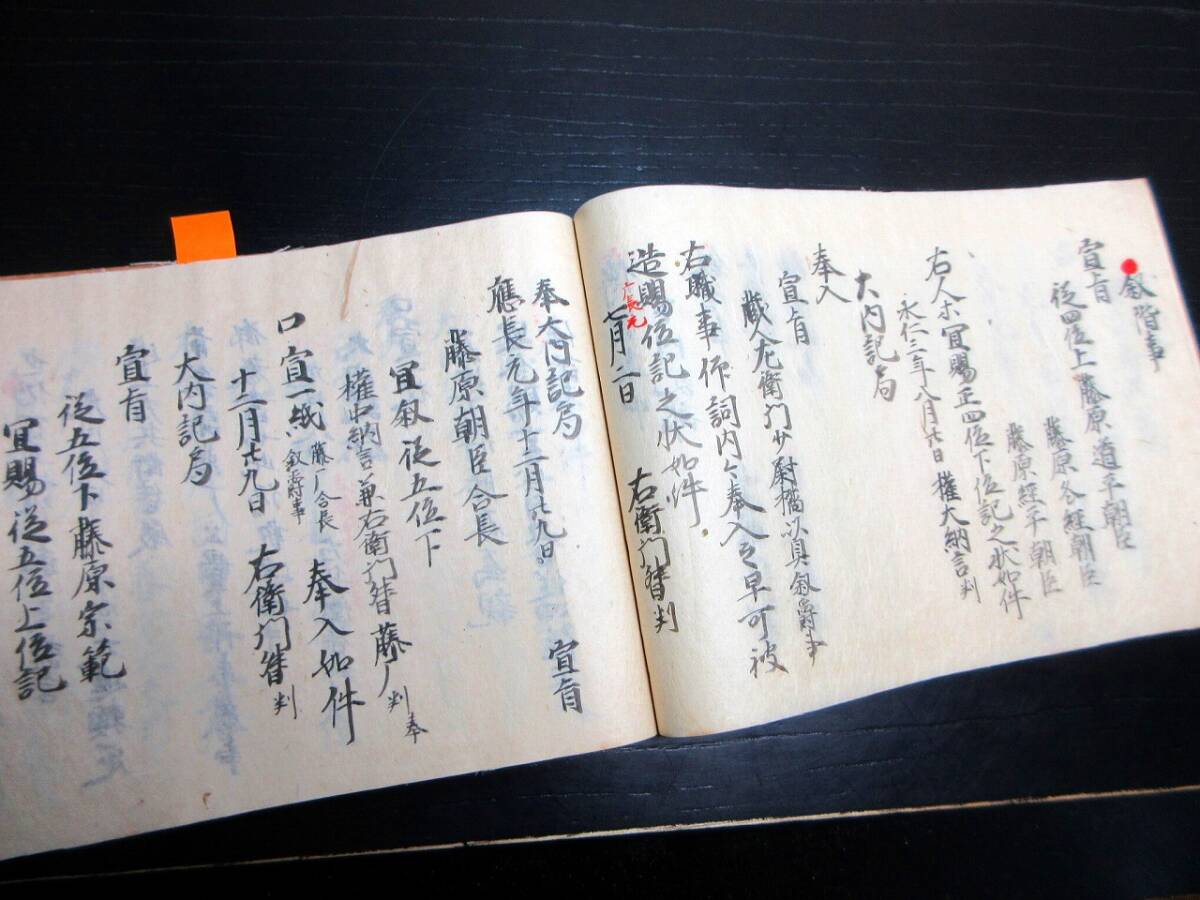 叙階事
宣旨
従四位上藤原道平朝臣
藤原冬経朝臣
藤原経平朝臣
右人ホ冝賜正四位下位記之状如件
永仁三年八月廿日 権大納言判
大内記局
奉入
宣旨
蔵人左衛門少尉橘以具叙爵事
右職事仰詞内々奉入之早可被
造賜位記之状如件
广長元
七月二日 右衛門督判
奉大内記局 宣旨
應長元年十二月廿九日
藤原朝臣合長
冝叙従五位下
権中納言兼右衛門督藤厂判奉
口宣一紙 藤厂合長叙爵事 奉入如件
十二月廿九日 右衛門督判
大内記局
宣旨
従五位下藤原宗範
冝賜従五位上位記